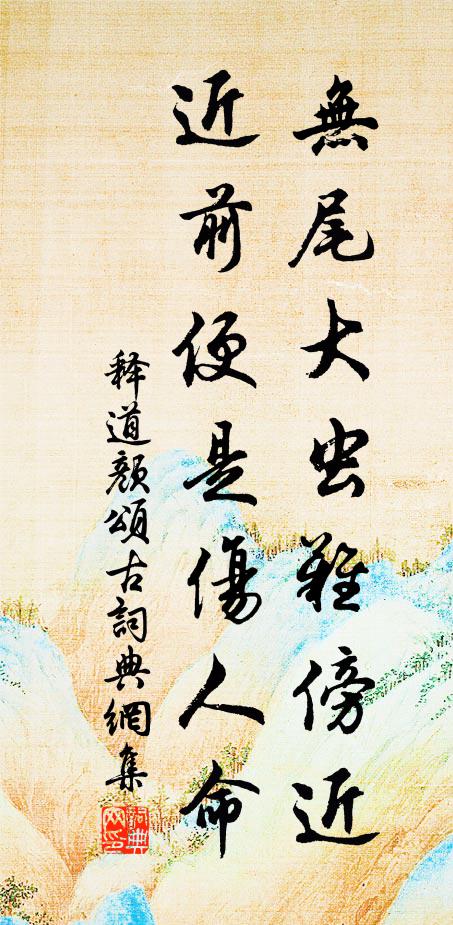 無尾大虫難傍近
近前便是傷人命
释道颜頌古詞典網集
詞典网印